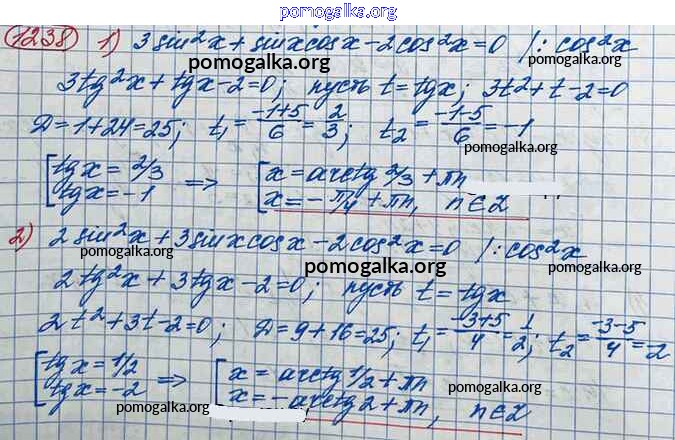 pomogalka.org
1238 1) 3sin²x + sinxcosx - 2cos²x = 0 /: cos²x
pomogalka.org
3tg²x + tgx - 2 = 0; пусть t = tgx; 3t² + t - 2 = 0
pomogalka.org
D = 1 + 24 = 25; t₁ = (-1+5)/6 = 2/3; t₂ = (-1-5)/6 = -1
pomogalka.org
[tgx = 2/3 => [x = arctg 2/3 + πn
[tgx = -1 [x = -π/4 + πn, n∈Z
pomogalka.org
2) 2sin²x + 3sinxcosx - 2cos²x = 0 /: cos²x
pomogalka.org pomogalka.org pomogalka.org
2tg²x + 3tgx - 2 = 0; пусть t = tgx
2t² + 3t - 2 = 0; D = 9 + 16 = 25; t₁ = (-3+5)/4 = 1/2; t₂ = (-3-5)/4 = -2
pomogalka.org
[tgx = 1/2 => [x = arctg 1/2 + πn
[tgx = -2 [x = -arctg 2 + πn, n∈Z
pomogalka.org pomogalka.org